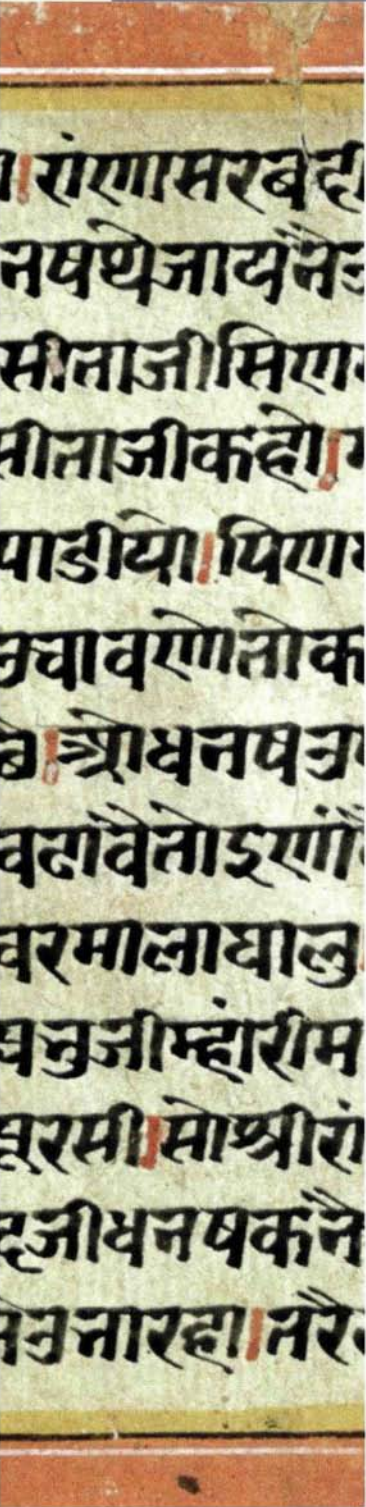 ।रांणासरबही
नषथेजायंनै
सीताजीसिण
सीताजीकहो।
पाडीयो।पिण
उचावणेतोक
बे।ओधनष
वढावैतोइणां
वरमालाघालु
प्रभुजीम्हांरीम
पूरसी।सोश्रीरां
द्रजीधनषकनै
उतारहा।तरै